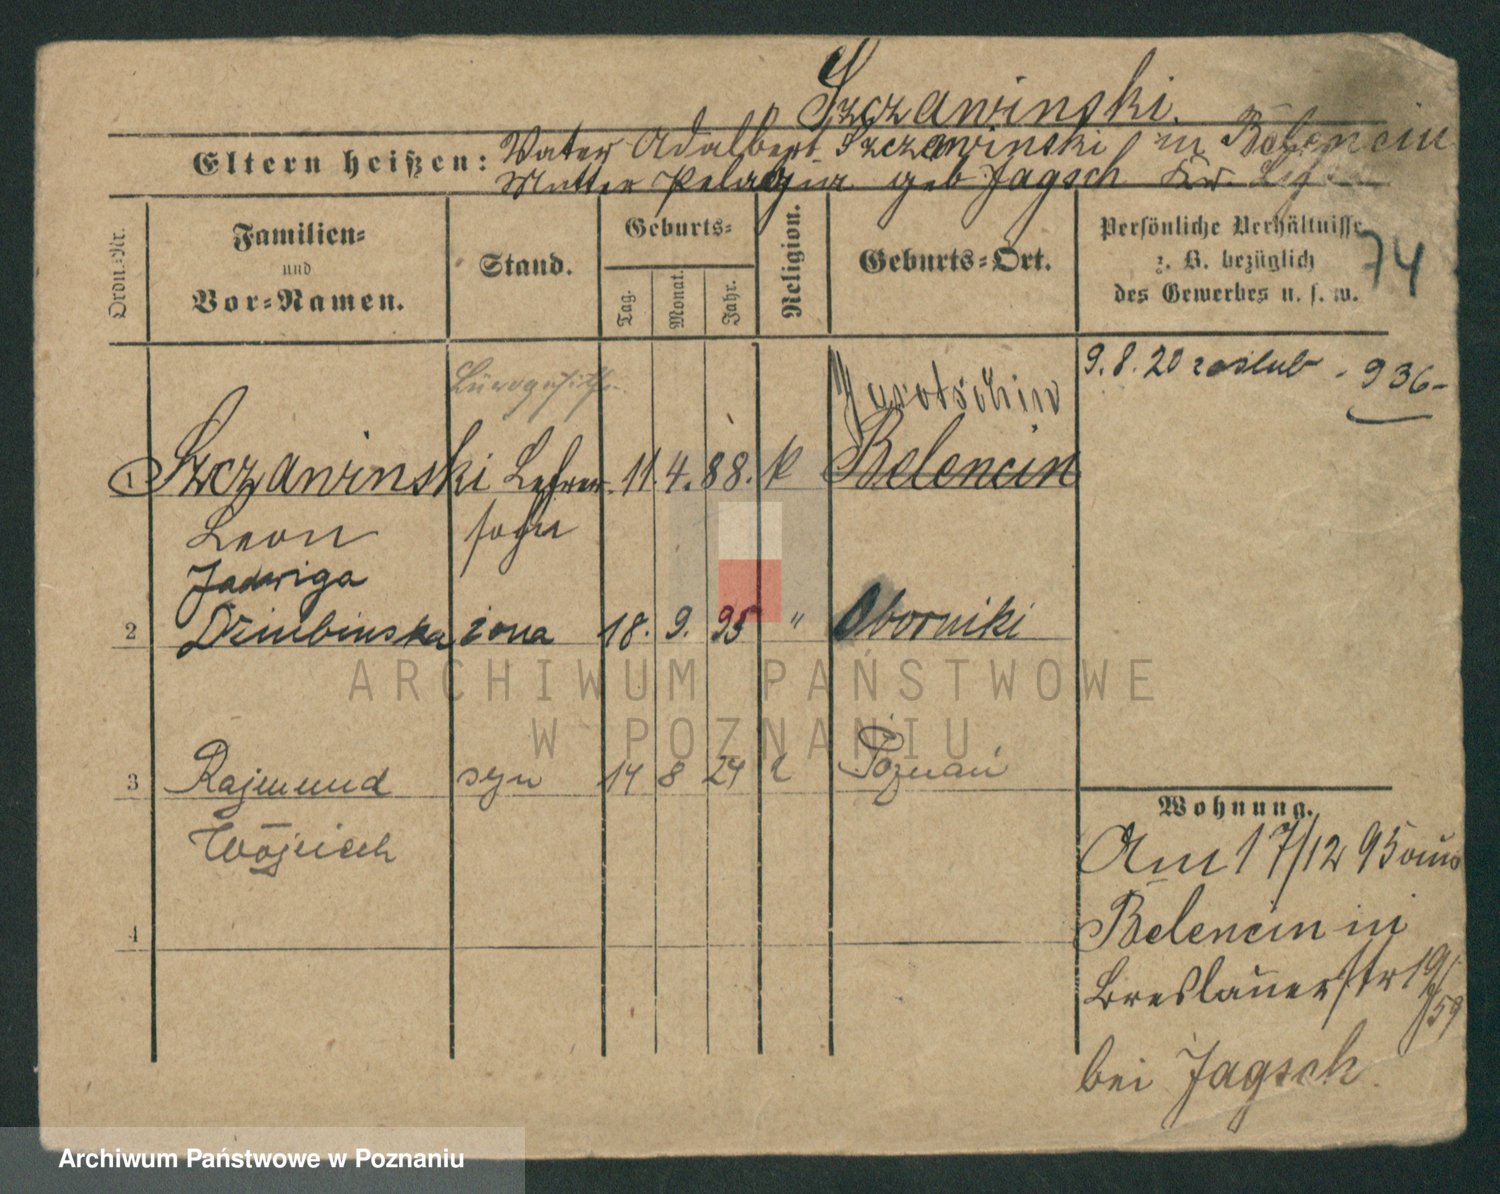 Szczawinski.
Eltern heißen: Vater Adalbert Szczawinski in Belencin
Mutter Pelagia geb Jagsch Kr.
Ordn.-Nr.
Familien-
und
Vor-Namen.
Stand.
Geburts-
Tag.
Monat.
Jahr.
Religion.
Geburts-Ort.
Persönliche Verhältnisse
z. B. bezüglich
des Gewerbes u. s. w.
74
Bürogehilfe
Jarotschin
9. 8. 20 zaślub - 936-
1 Szczawinski Lehrer 11. 4. 88. k Belencin
Leon sohn
Jadwiga
2 Dziubinska żona 18. 9. 95 " Oborniki
3 Rajmund syn 14 8 24 Poznań
Wojciech
4
Wohnung.
Am 17/12 95 aus
Belencin in
Breslauerstr 19/
59
bei Jagsch
ARCHIWUM PAŃSTWOWE
W POZNANIU
Archiwum Państwowe w Poznaniu